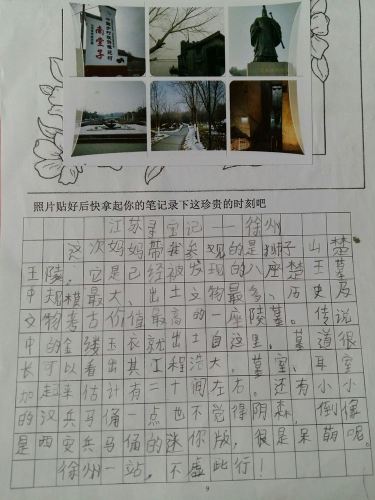 南堂子
照片贴好后快拿起你的笔记录下这珍贵的时刻吧
江苏寻宝记——徐州
这次妈妈带我参观的是狮子山楚
王陵。它是已经被发现的八座楚王墓
中规模最大、出土文物最多、历史及
文物考古价值最高的一座陵墓。传说
中的金缕玉衣就出土自这里。墓道很
长可以看出其工程浩大。墓室、耳室
加起来估计有二十间左右。还有小小
的汉兵马俑一点也不觉得阴森，倒像
是西安兵马俑的迷你版，很是呆萌呢。
徐州一站，不虚此行！
9